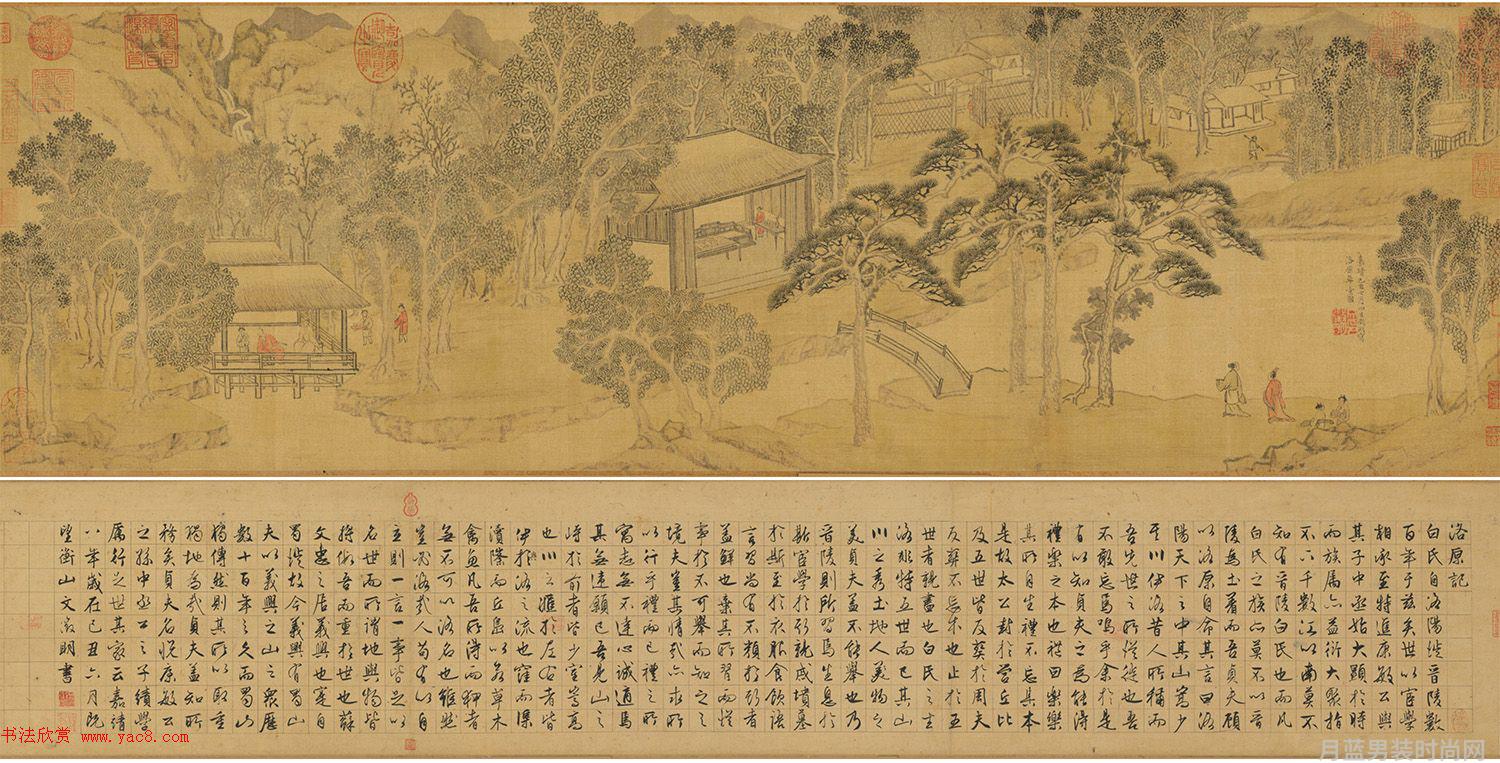 洛原記
白氏自洛陽徙晉陵數
百年于茲矣世以宦學
相承至特進康敏公與
其子中丞姑大顯於時
而族屬亦益衍大聚指
不六千數江以南莫不
知有晉陵白氏也而凡
白氏之族亦莫不以晉
陵為土著而吾貞夫顧
以洛原自命其言曰洛
陽天下之中其山嵩少
其川伊洛昔人所稱而
吾先世之所從徙也吾
不敢忘焉嗚乎余於是
有以知貞夫之為能得
禮樂之本也禮曰樂樂
其所自生禮不忘其本
是故太公封於營丘比
及五世皆反葬於周夫
反葬不忘本也止於五
世者親盡也白氏之主
洛非特五世而已其山
川之秀土地人美物之
美貞夫蓋不能舉也乃
晉陵則所習焉生息於
斯宦學於斯就成墳墓
於斯至於衣服食飲語
言習尚有不類於斯者
蓋鮮也棄其所習而悅
事於不可舉而知之之
境夫豈其情哉亦求所
以行乎禮而已禮之所
寓志無不達心誠通焉
其無遠顧已吾見山之
峙於前者皆少室嵩高
也川之滙於左右者皆
伊於洛之流也窪而渠
瀆隆而丘島以名草木
禽魚凡吾所得而狎者
無不可以洛名也雖然
豈於洛哉人苟有以自
主則一言一事皆足以
名世而所謂地與物皆
將俯吾而重於世也蘇
文忠之居義興也寔自
蜀徙故今義興有蜀山
夫以義興之山之衆歷
數十百年之久而蜀山
獨傳然則其所以取重
獨地為哉貞夫蓋知所
務矣貞夫名悅康敏公
之孫中丞公之子績學
厲行之世其家云嘉靖
八年歲在己丑六月既
望衡山文徵明書
书法欣赏 www.yac8.com
月蓝男装时尚网